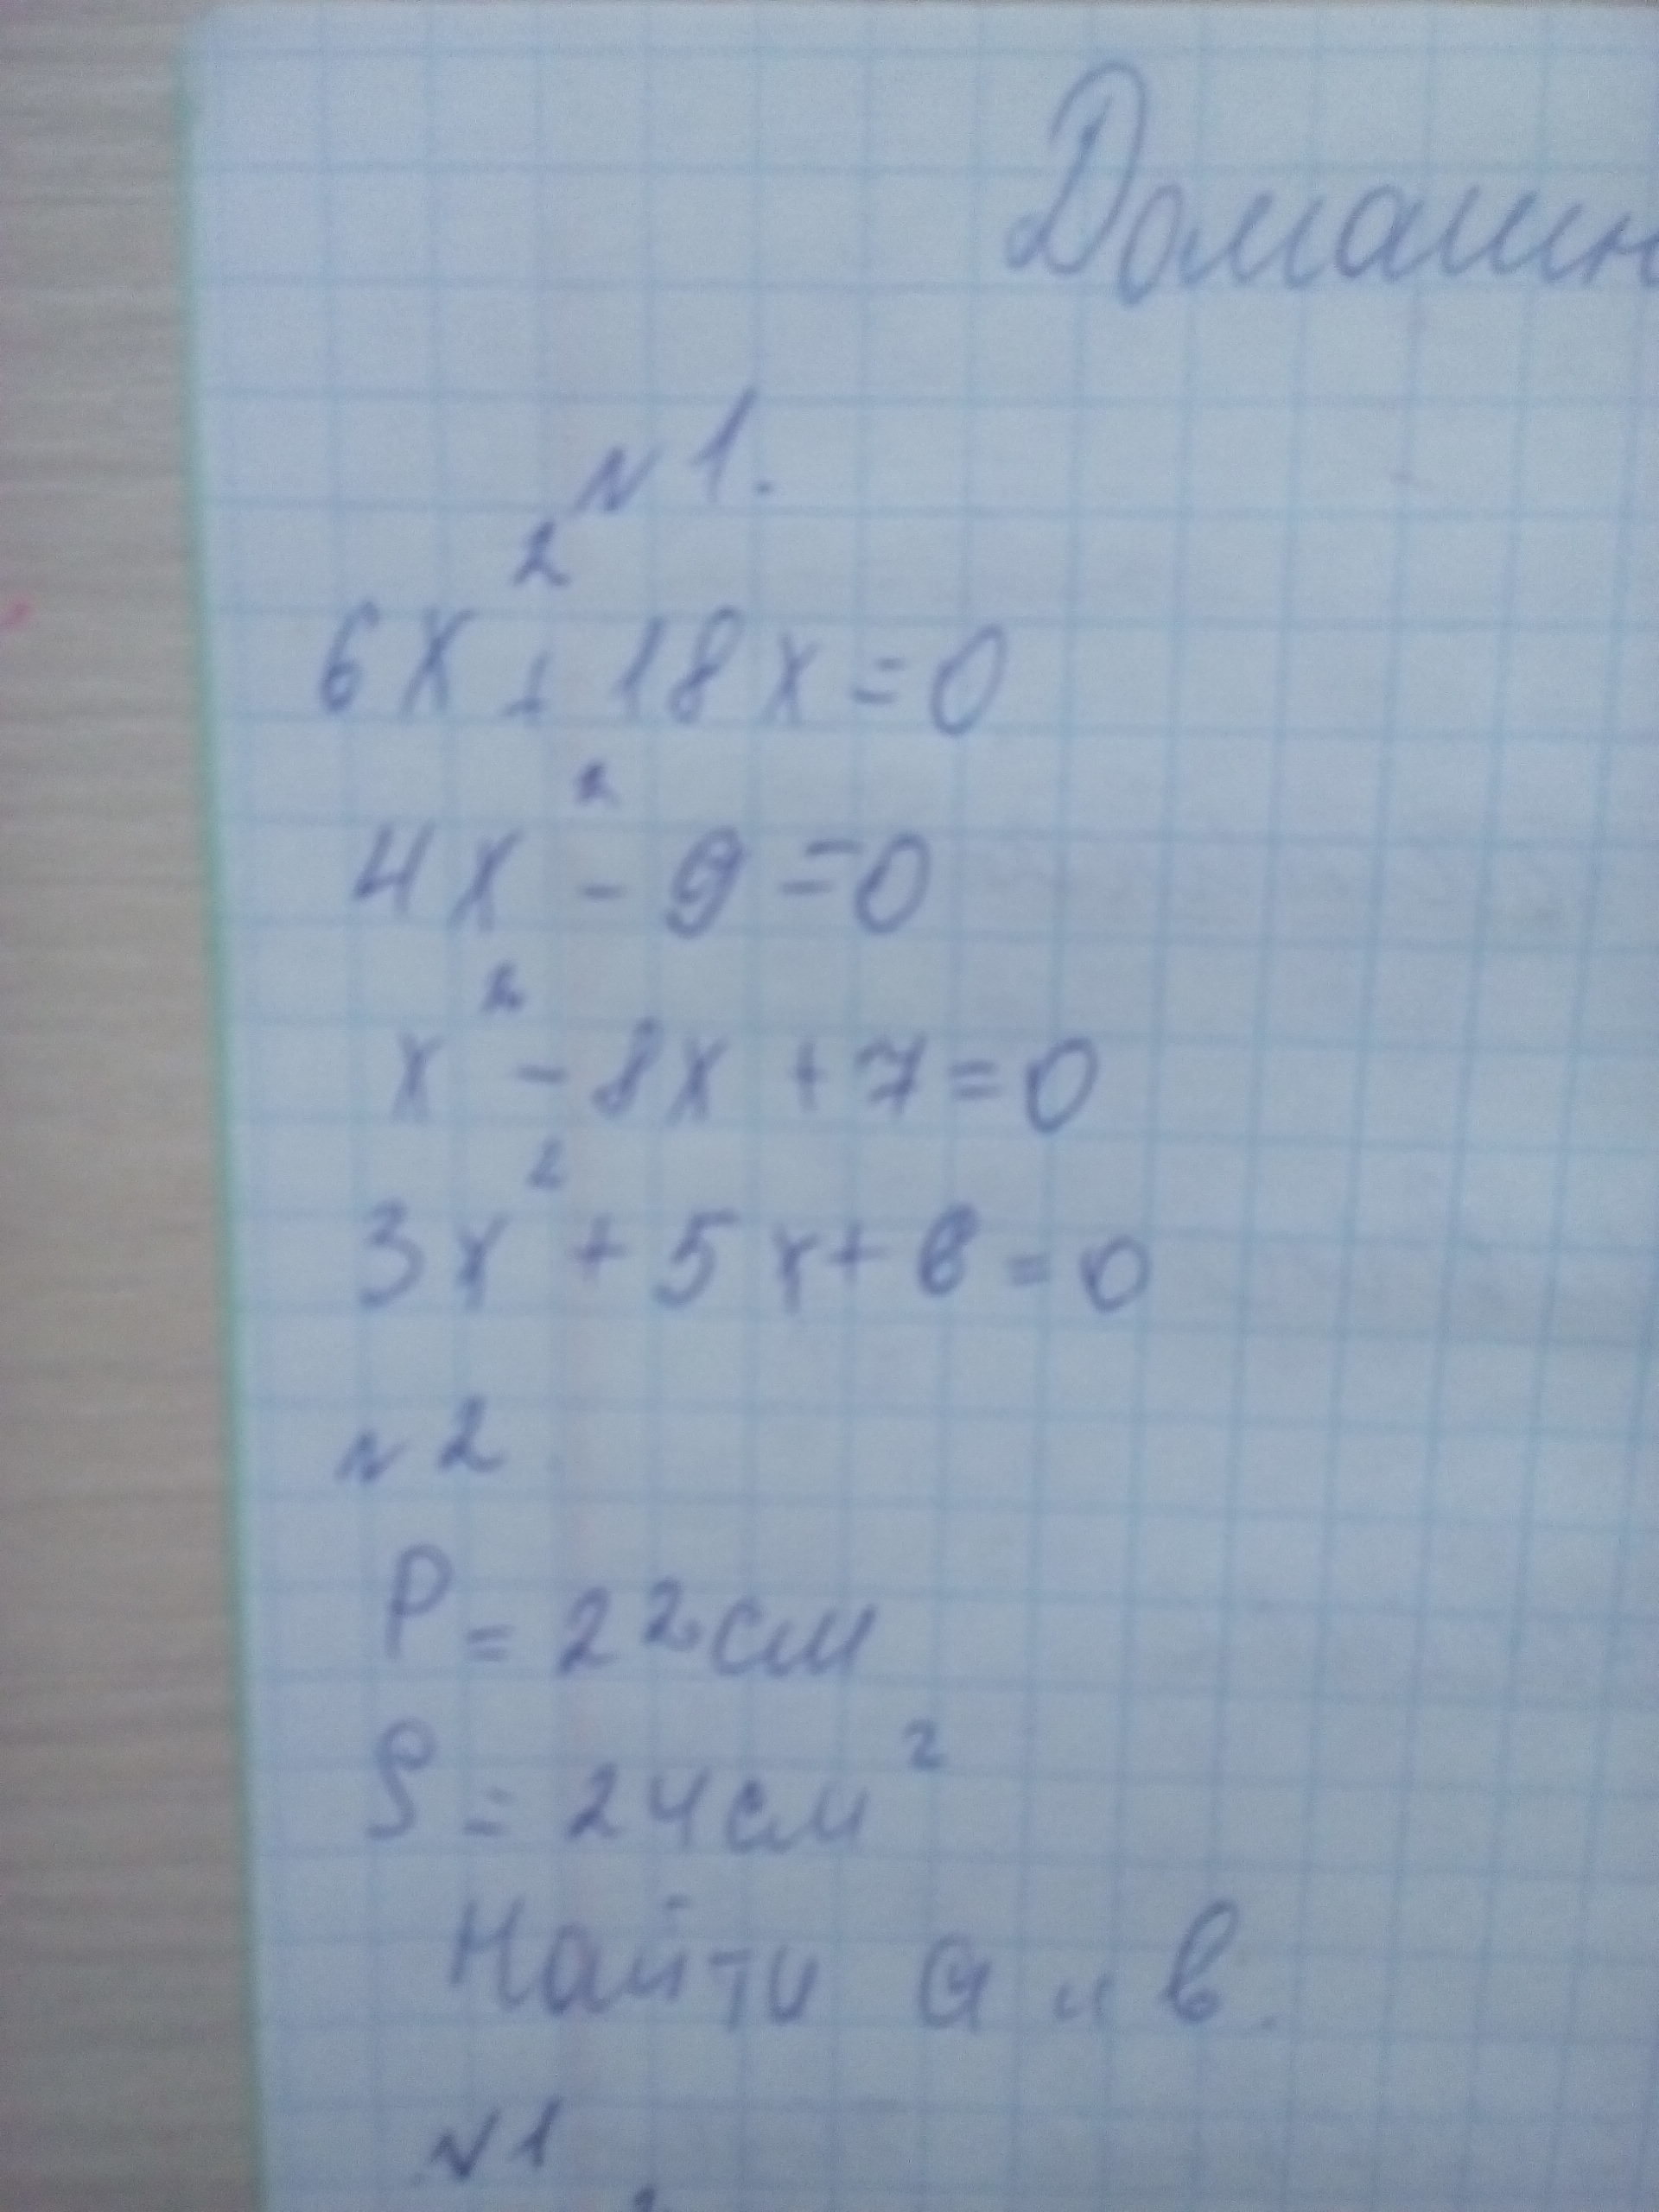 Домашн
№1.
6x² + 18x = 0
4x² - 9 = 0
x² - 8x + 7 = 0
3x² + 5x + 6 = 0
№2
P = 22см
S = 24см²
Найти а и в.
№1
2